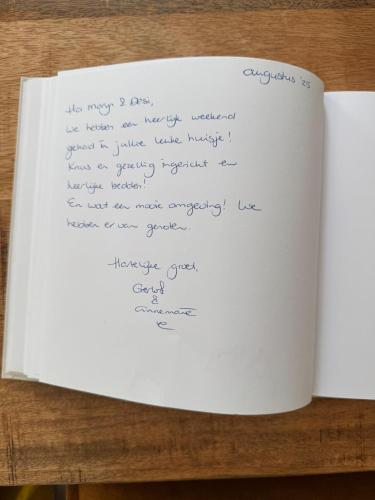 augustus '25
Hoi Marijn & Desi,
We hebben een heerlijk weekend
gehad in jullie leuke huisje!
Knus en gezellig ingericht en
heerlijke bedden!
En wat een mooie omgeving! We
hebben ervan genoten.
Hartelijke groet,
Gerlof
&
Annemarie